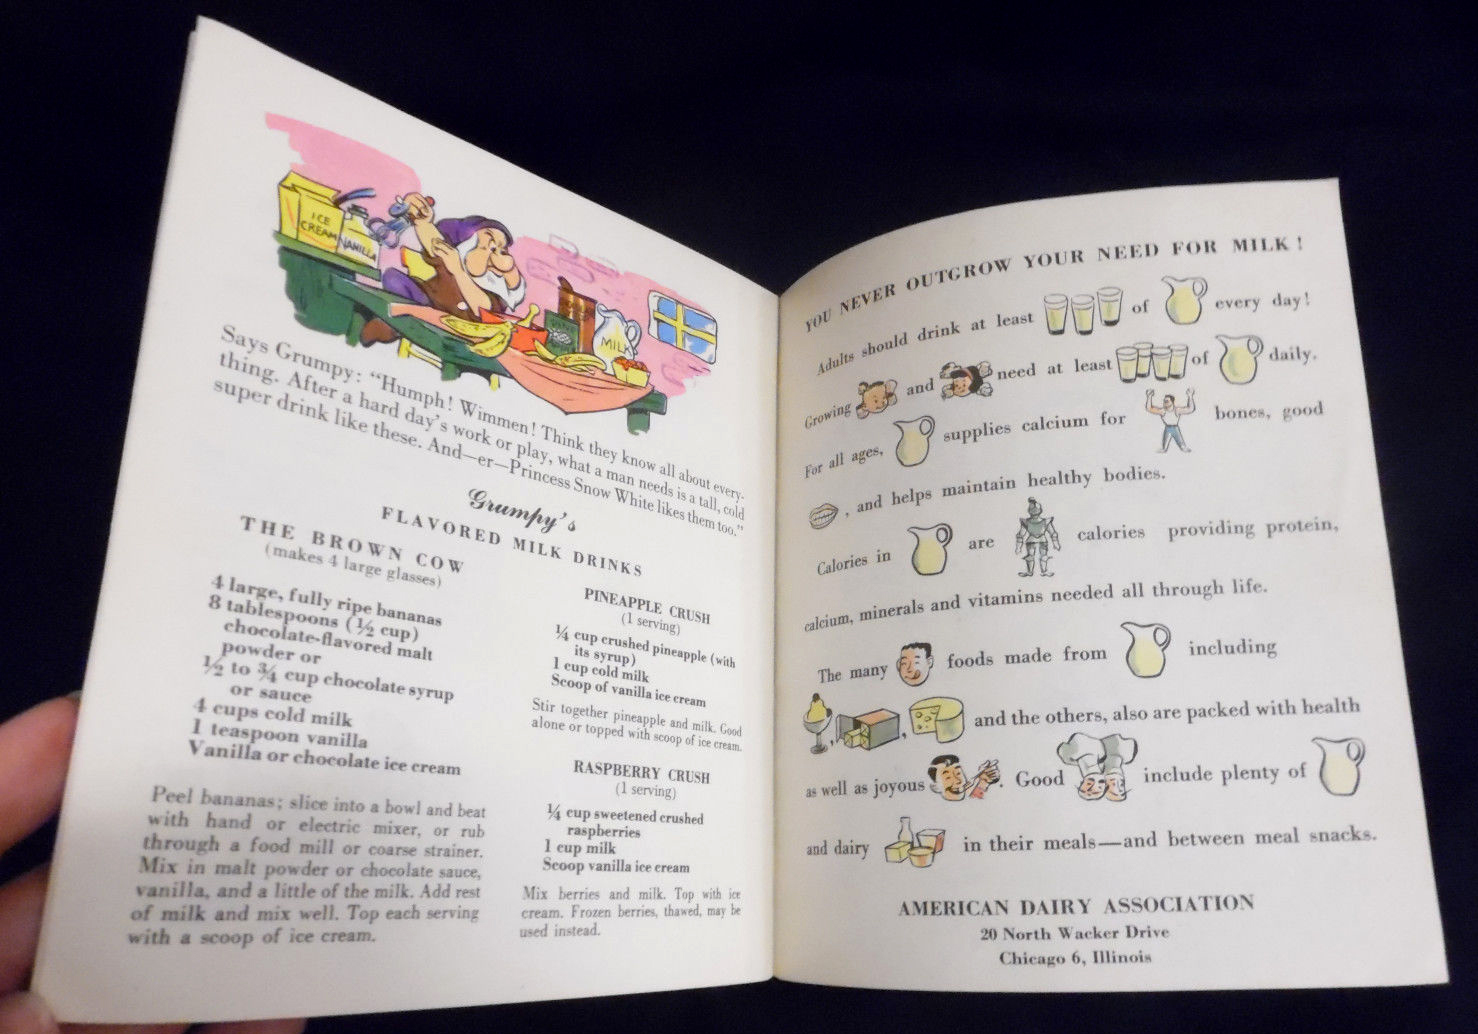 ICE
CREAM
VANILLA
MILK
Says Grumpy: "Humph! Wimmen! Think they know all about every-
thing. After a hard day's work or play, what a man needs is a tall, cold
super drink like these. And—er—Princess Snow White likes them too."
Grumpy's
FLAVORED MILK DRINKS
THE BROWN COW
(makes 4 large glasses)
4 large, fully ripe bananas
8 tablespoons (½ cup)
chocolate-flavored malt
powder or
½ to ¾ cup chocolate syrup
or sauce
4 cups cold milk
1 teaspoon vanilla
Vanilla or chocolate ice cream
Peel bananas; slice into a bowl and beat
with hand or electric mixer, or rub
through a food mill or coarse strainer.
Mix in malt powder or chocolate sauce,
vanilla, and a little of the milk. Add rest
of milk and mix well. Top each serving
with a scoop of ice cream.
PINEAPPLE CRUSH
(1 serving)
¼ cup crushed pineapple (with
its syrup)
1 cup cold milk
Scoop of vanilla ice cream
Stir together pineapple and milk. Good
alone or topped with scoop of ice cream.
RASPBERRY CRUSH
(1 serving)
¼ cup sweetened crushed
raspberries
1 cup milk
Scoop vanilla ice cream
Mix berries and milk. Top with ice
cream. Frozen berries, thawed, may be
used instead.
YOU NEVER OUTGROW YOUR NEED FOR MILK!
Adults should drink at least of every day!
Growing and need at least of daily.
For all ages, supplies calcium for bones, good
, and helps maintain healthy bodies.
Calories in are calories providing protein,
calcium, minerals and vitamins needed all through life.
The many foods made from including
, , and the others, also are packed with health
as well as joyous . Good include plenty of
and dairy in their meals—and between meal snacks.
AMERICAN DAIRY ASSOCIATION
20 North Wacker Drive
Chicago 6, Illinois